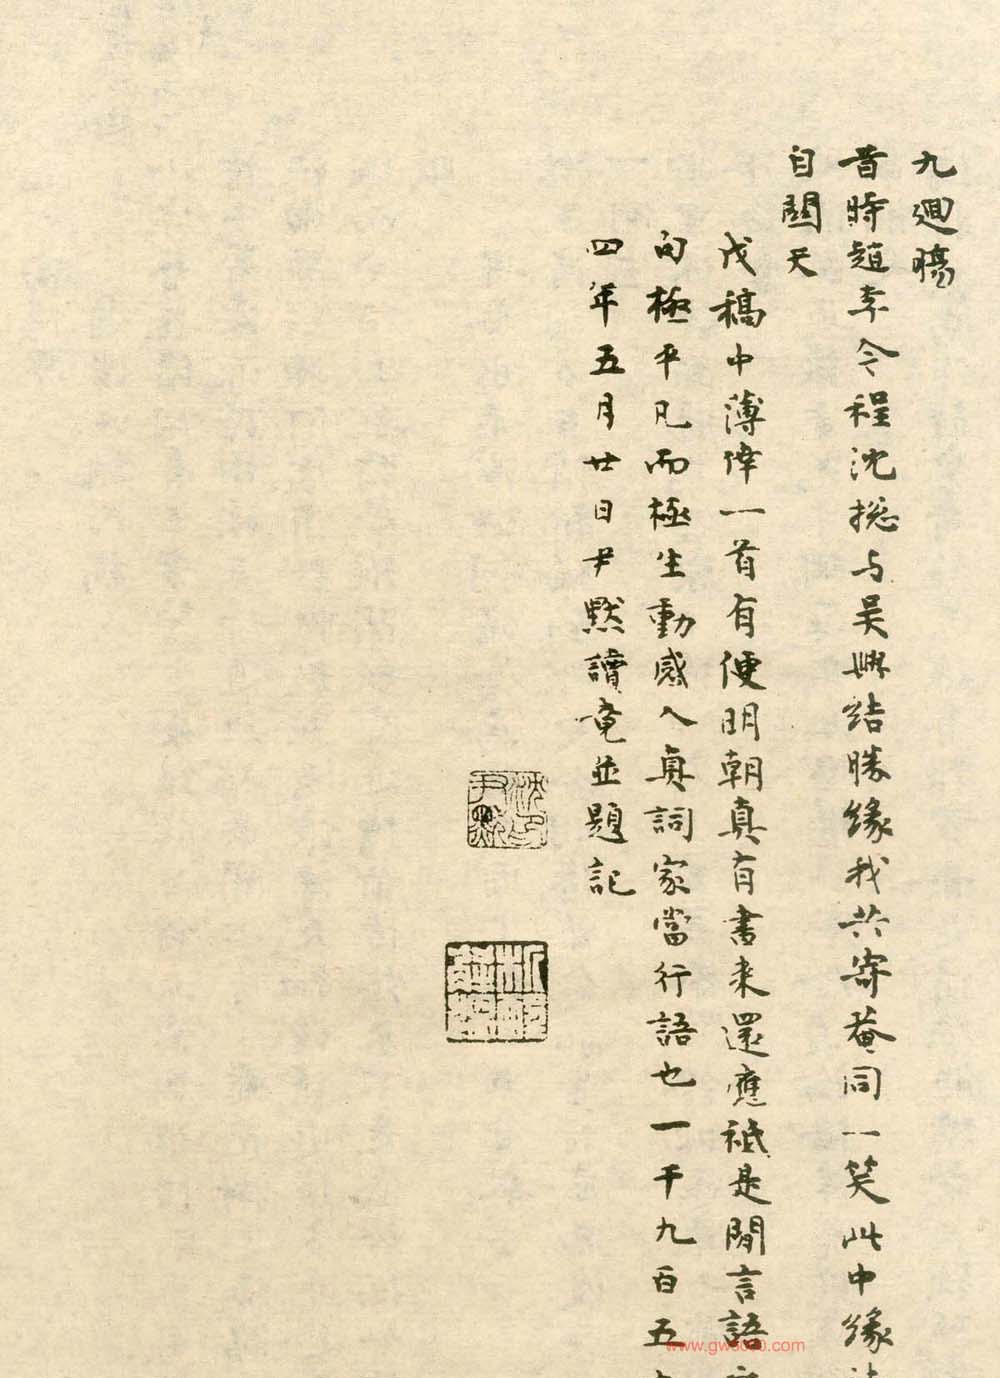 九迴腸
昔時趙李今程沈揔与吴興結勝緣我共寄菴同一笑此中緣
自關天
戊稿中薄倖一首有便明朝真有書来還應祇是閒言語
句極平凡而極生動感人真詞家當行語也一千九百五
四年五月廿日尹默讀竟並題記
沈尹默印
www.gw5000.com